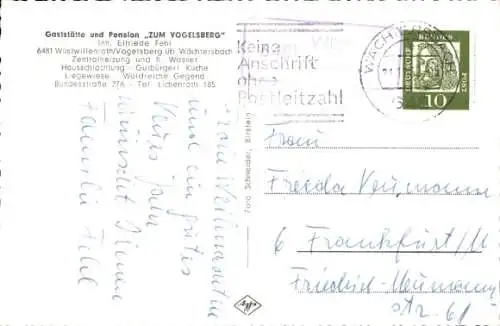 Gaststätte und Pension „ZUM VOGELSBERG"
Inh. Elfriede Fehl
6481 Wüstwillenroth/Vogelsberg üb. Wächtersbach
Zentralheizung und fl. Wasser
Hausschlachtung Gutbürgerl. Küche
Liegewiese Waldreiche Gegend
Bundesstraße 276 - Tel. Lichenroth 185
Frohe Weihnachten
und ein gutes
Neues Jahr
wünscht Ihnen
Familie Fehl
Foto Schneider, Birstein
Keine
Anschrift
ohne
Postleitzahl
WÄCHTERSBACH
DEUTSCHE BUNDESPOST
10
Frau
Frieda Neumann
6 Frankfurt/M
Friedrich-Neumann
Str. 61
Agfa